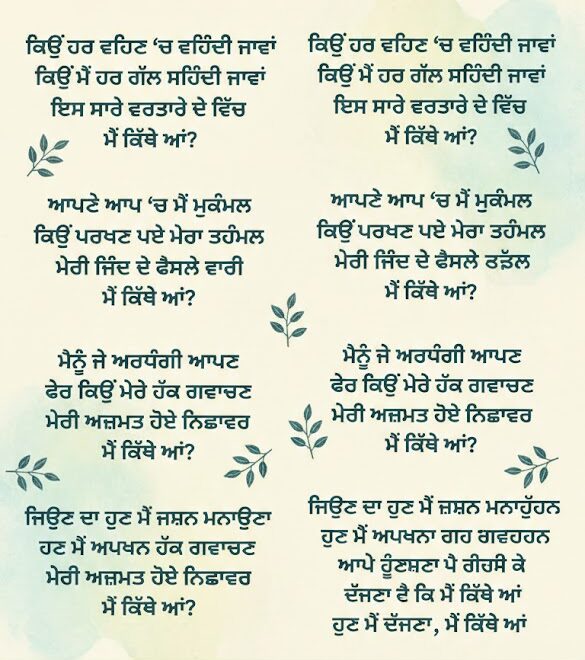 ਕਿਉਂ ਹਰ ਵਹਿਣ ‘ਚ ਵਹਿੰਦੀ ਜਾਵਾਂ
ਕਿਉਂ ਮੈਂ ਹਰ ਗੱਲ ਸਹਿੰਦੀ ਜਾਵਾਂ
ਇਸ ਸਾਰੇ ਵਰਤਾਰੇ ਦੇ ਵਿੱਚ
ਮੈਂ ਕਿੱਥੇ ਆਂ?
ਆਪਣੇ ਆਪ ‘ਚ ਮੈਂ ਮੁਕੰਮਲ
ਕਿਉਂ ਪਰਖਣ ਪਏ ਮੇਰਾ ਤਹੰਮਲ
ਮੇਰੀ ਜਿੰਦ ਦੇ ਫੈਸਲੇ ਵਾਰੀ
ਮੈਂ ਕਿੱਥੇ ਆਂ?
ਮੈਨੂੰ ਜੇ ਅਰਧੰਗੀ ਆਪਣ
ਫੇਰ ਕਿਉਂ ਮੇਰੇ ਹੱਕ ਗਵਾਚਣ
ਮੇਰੀ ਅਜ਼ਮਤ ਹੋਏ ਨਿਛਾਵਰ
ਮੈਂ ਕਿੱਥੇ ਆਂ?
ਜਿਉਣ ਦਾ ਹੁਣ ਮੈਂ ਜਸ਼ਨ ਮਨਾਉਣਾ
ਹਣ ਮੈਂ ਅਪਖਨ ਹੱਕ ਗਵਾਚਣ
ਮੇਰੀ ਅਜ਼ਮਤ ਹੋਏ ਨਿਛਾਵਰ
ਮੈਂ ਕਿੱਥੇ ਆਂ?
ਕਿਉਂ ਹਰ ਵਹਿਣ ‘ਚ ਵਹਿੰਦੀ ਜਾਵਾਂ
ਕਿਉਂ ਮੈਂ ਹਰ ਗੱਲ ਸਹਿੰਦੀ ਜਾਵਾਂ
ਇਸ ਸਾਰੇ ਵਰਤਾਰੇ ਦੇ ਵਿੱਚ
ਮੈਂ ਕਿੱਥੇ ਆਂ?
ਆਪਣੇ ਆਪ ‘ਚ ਮੈਂ ਮੁਕੰਮਲ
ਕਿਉਂ ਪਰਖਣ ਪਏ ਮੇਰਾ ਤਹੰਮਲ
ਮੇਰੀ ਜਿੰਦ ਦੇ ਫੈਸਲੇ
ਮੈਂ ਕਿੱਥੇ ਆਂ?
ਮੈਨੂੰ ਜੇ ਅਰਧੰਗੀ ਆਪਣ
ਫੇਰ ਕਿਉਂ ਮੇਰੇ ਹੱਕ ਗਵਾਚਣ
ਮੇਰੀ ਅਜ਼ਮਤ ਹੋਏ ਨਿਛਾਵਰ
ਮੈਂ ਕਿੱਥੇ ਆਂ?
ਜਿਉਣ ਦਾ ਹੁਣ ਮੈਂ ਜ਼ਸ਼ਨ ਮਨਾਹੁੱਹਨ
ਹੁਣ ਮੈਂ ਅਪਖਨਾ ਗਹ ਗਵਹਹਨ
ਆਪੇ ਪੈ ਰੀਹਸੀ ਕੇ
ਦੱਜਣਾ ਵੈ ਕਿ ਮੈਂ ਕਿੱਥੇ ਆਂ
ਹੁਣ ਮੈਂ ਦੱਜਣਾ, ਮੈਂ ਕਿੱਥੇ ਆਂ